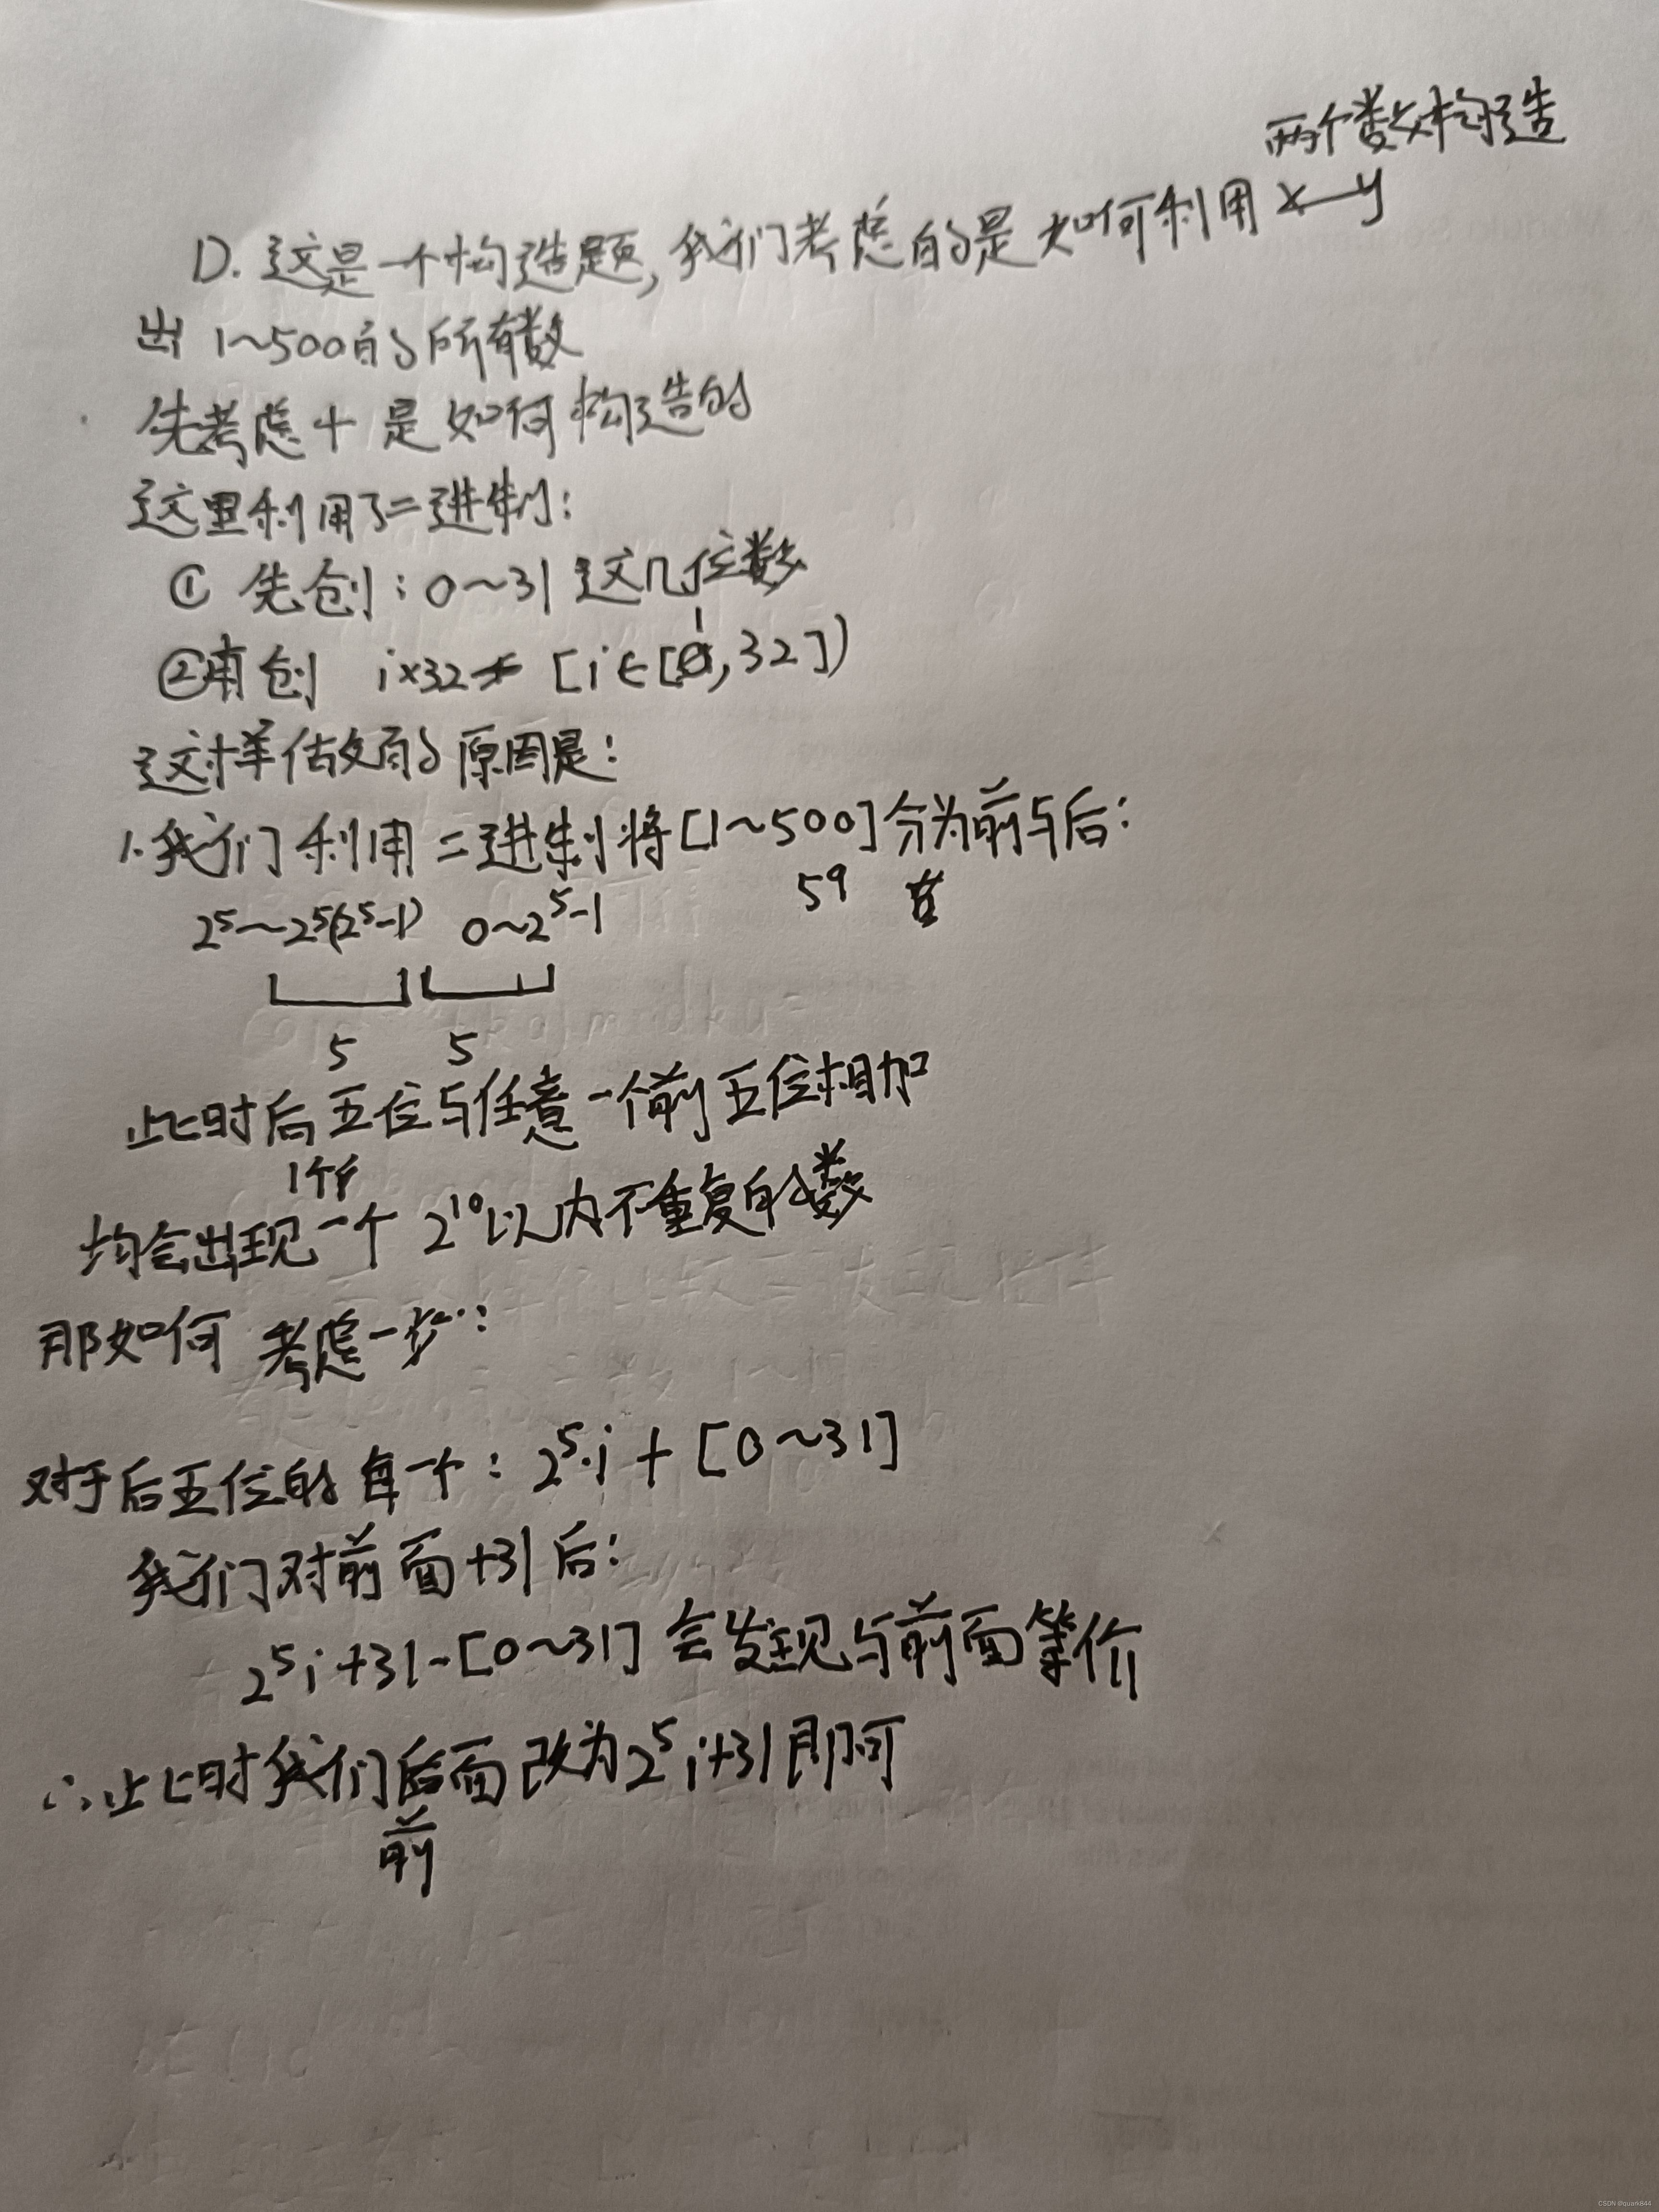 两个数构造
D. 这是一个构造题,我们考虑的是如何利用 x—y
出 1~500的所有数
先考虑 + 是如何构造的
这里利用了二进制:
① 先创: 0~31 这几位数
1
②再创 i×32 [i∈[0,32])
这样做的原因是:
1.我们利用二进制将[1~500]分为前与后:
2⁵~2⁵(2⁵-1) 0~2⁵-1 59
5 5
此时后五位与任意一个前五位相加
1个
均会出现一个 2¹⁰以内不重复的数
那如何 考虑一步:
对于后五位的每一个: 2⁵·i + [0~31]
我们对前面+31后:
2⁵i+31-[0~31] 会发现与前面等价
∴此时我们后面改为2⁵i+31即可
前
CSDN @quark844